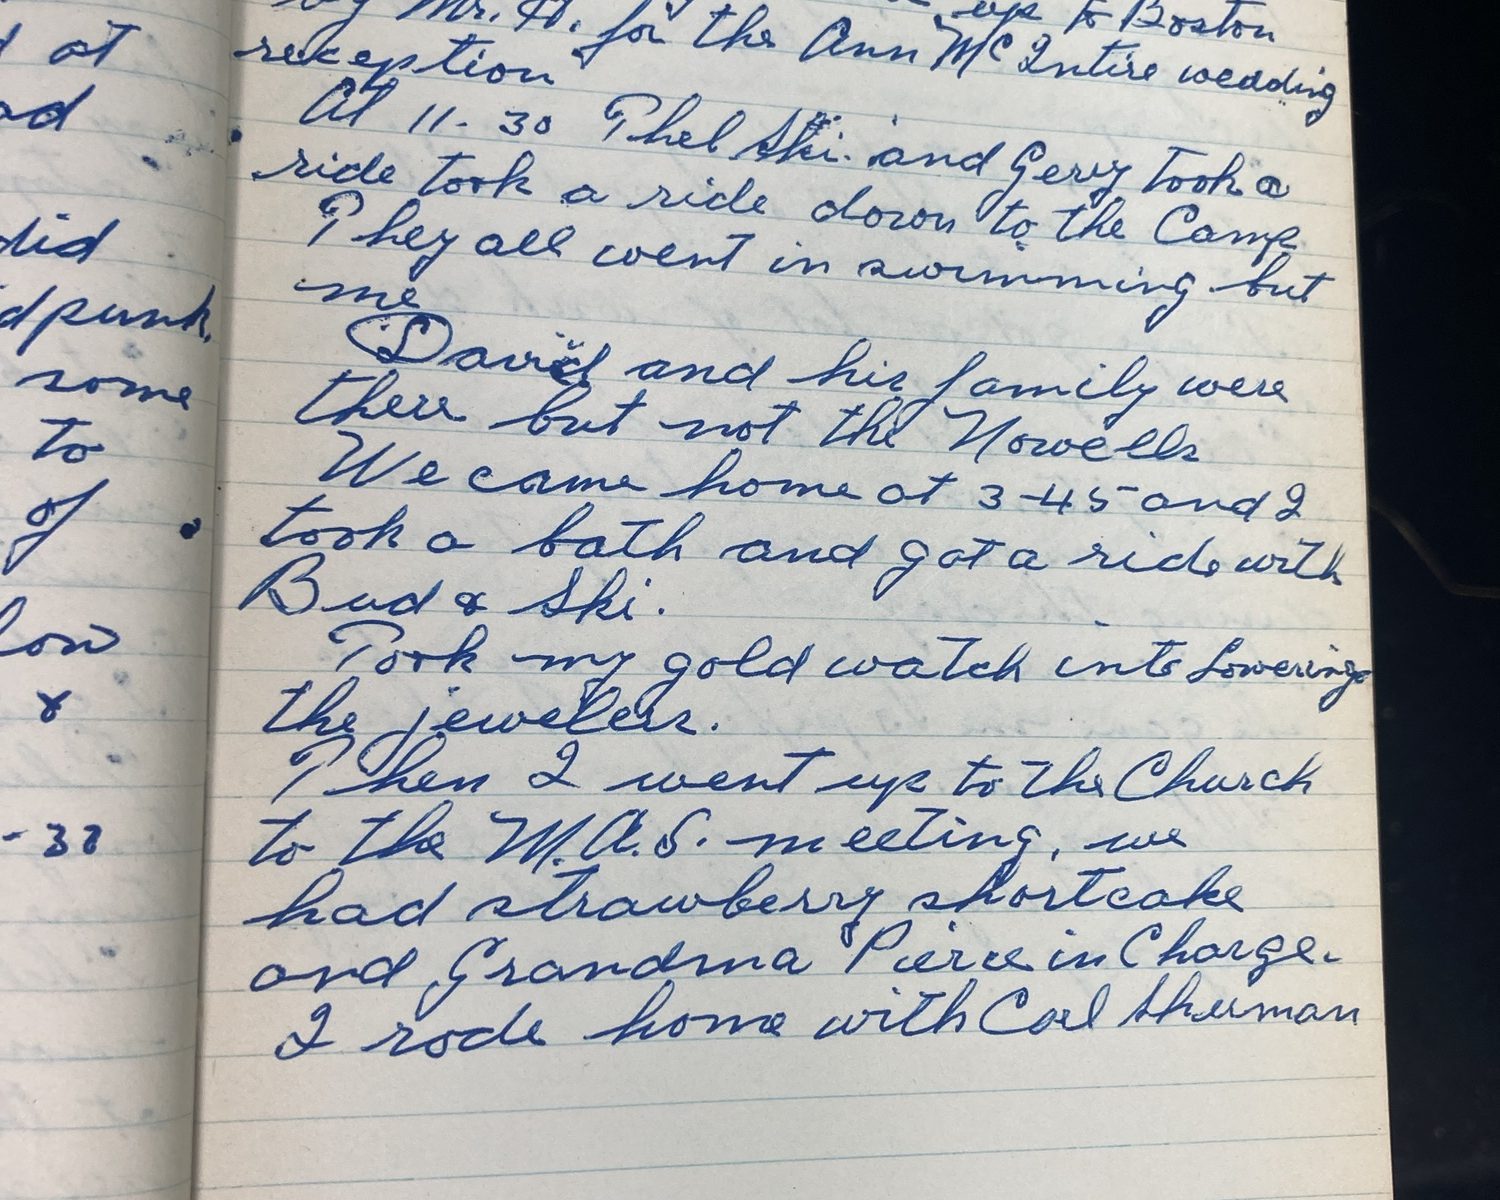 d at
ad
did
d punk.
some
to
of
low
&
-30
up to Boston
by Mr. H. for the Ann McIntire wedding
reception
At 11-30 Phel Ski. and Gerry took a
ride took a ride down to the Camp
They all went in swimming but
me
David and his family were
there but not the Nowells
We came home at 3-45 and I
took a bath and got a ride with
Bud & Ski.
Took my gold watch into Lowerings
the jewelers.
Then I went up to the Church
to the M.A.S. meeting, we
had strawberry shortcake
and Grandma Pierce in Charge.
I rode home with Carl Sherman